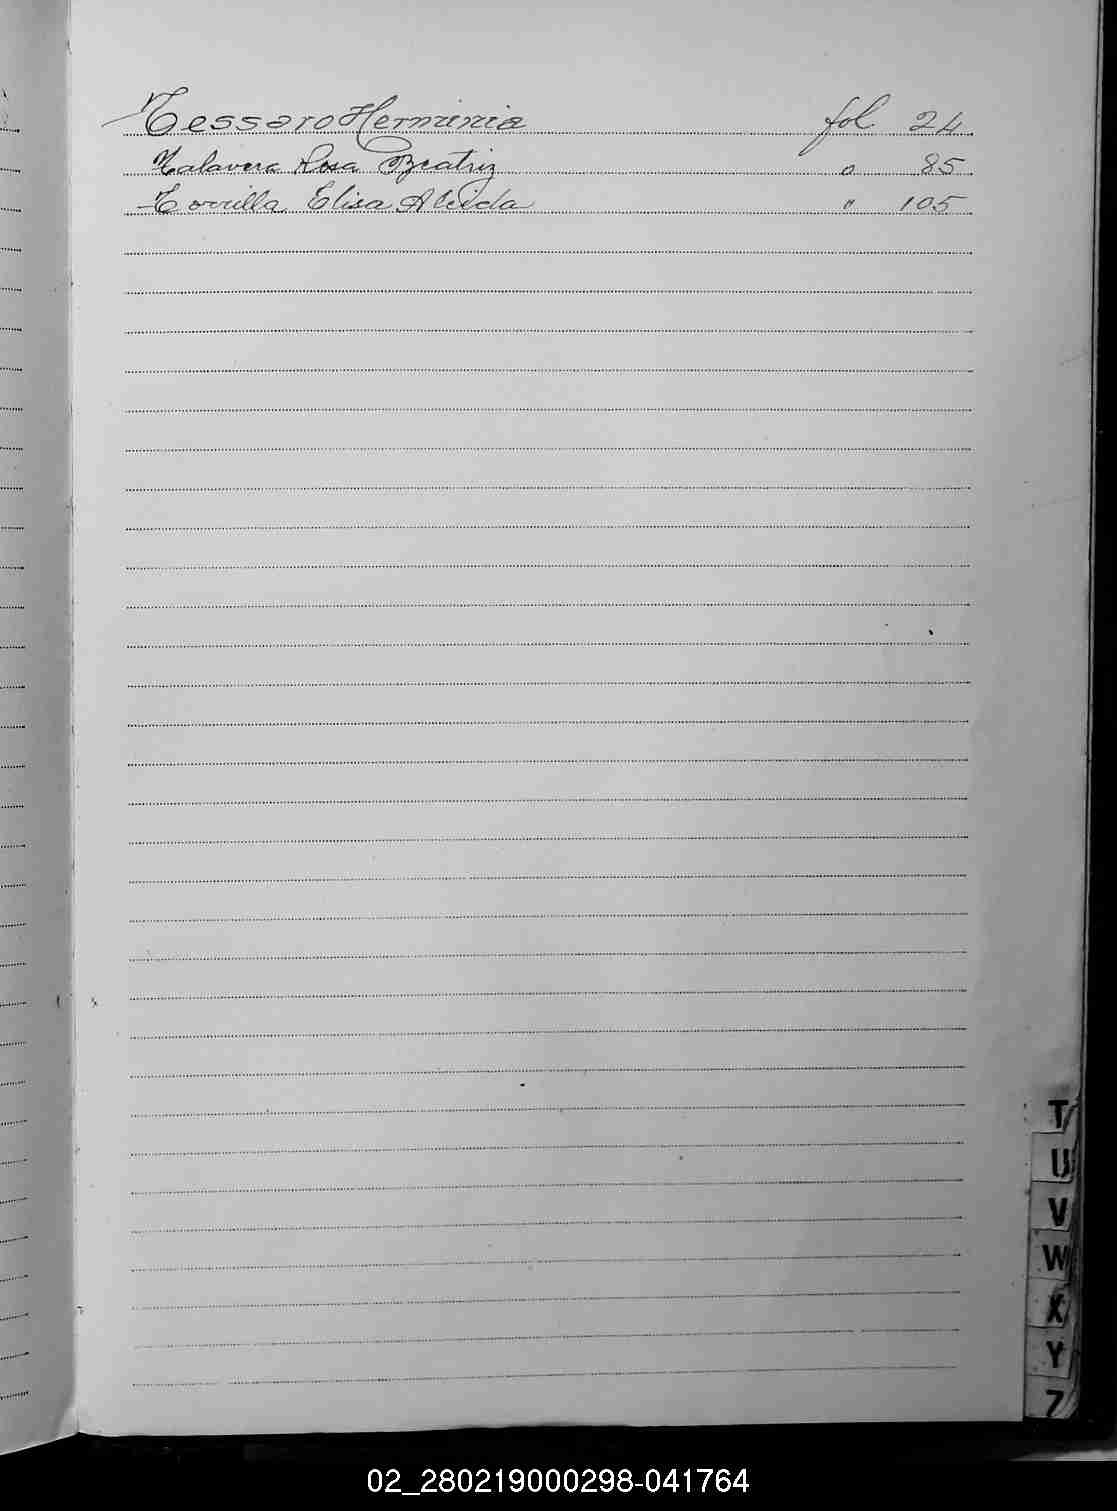 Tessaro Herminia fol 24
Talavera Rosa Beatriz " 85
Torrilla Elisa Aleida " 105
T
U
V
W
X
Y
Z
02_280219000298-041764